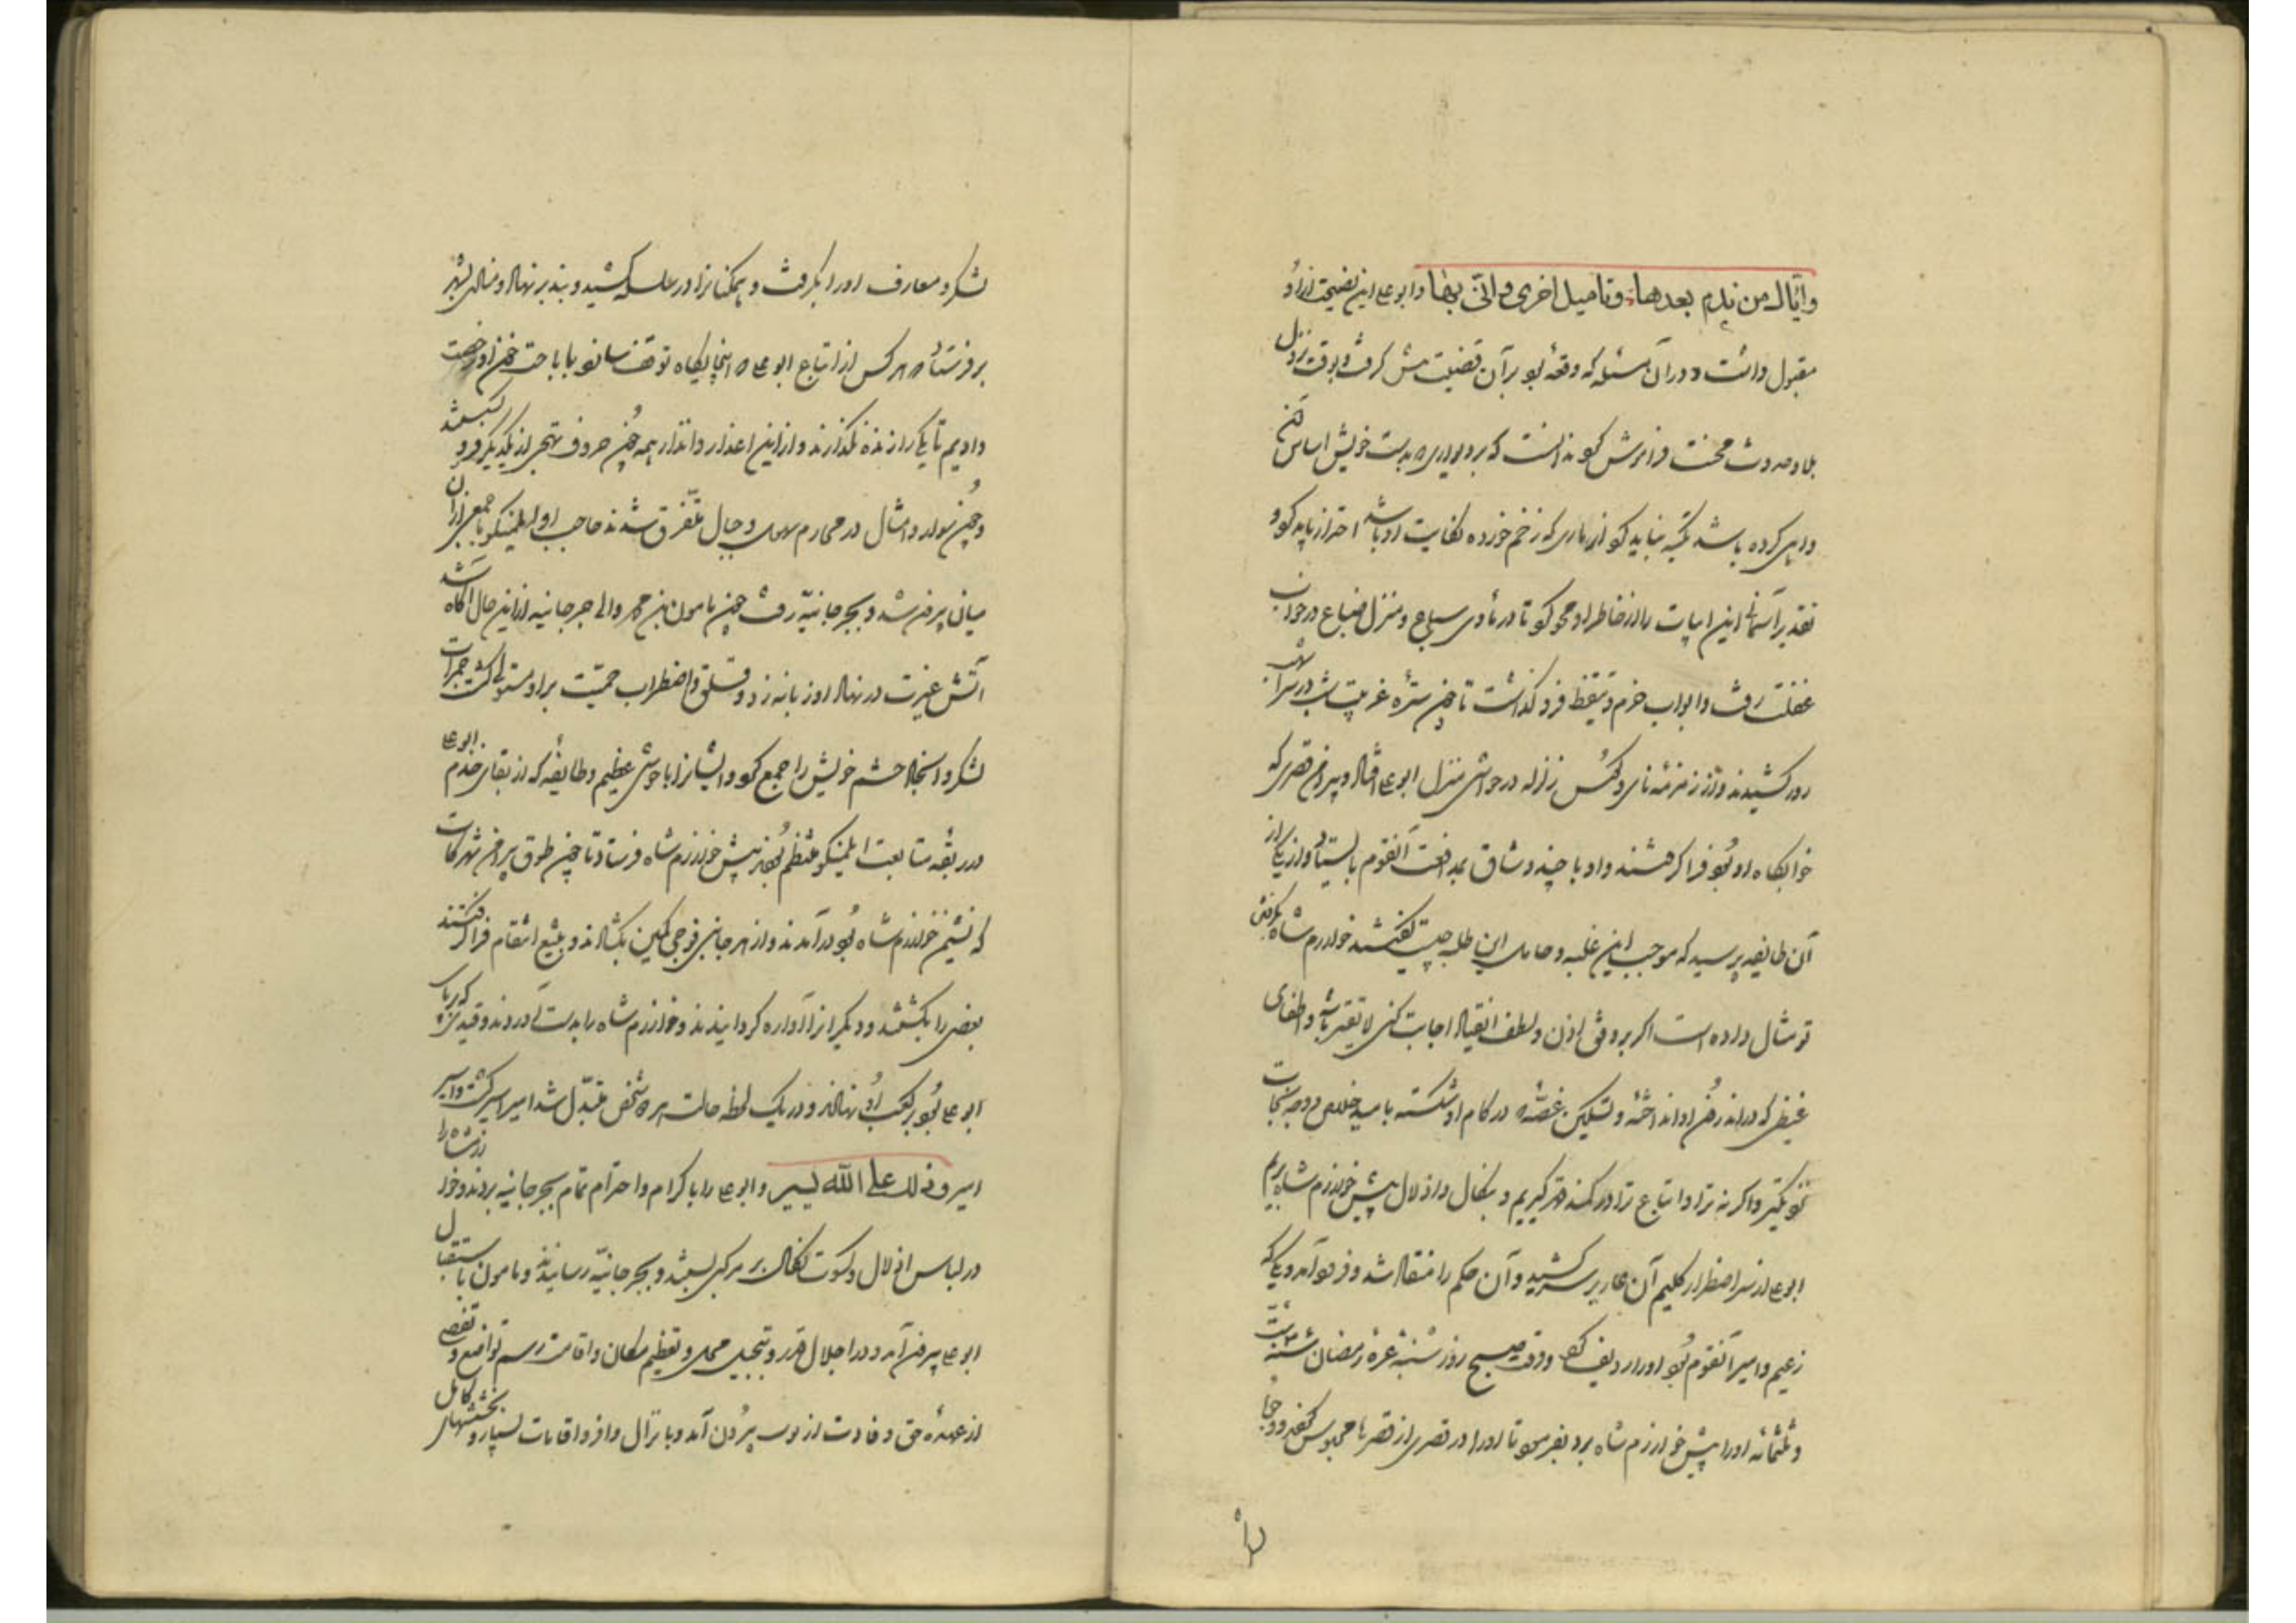 وایّاک من ندم بعدها وتامیل اخری وانّی بها وابوعلی این نصیحت ازو
مقبول داشت و در آن مسئله که وقعه بود بر آن قضیت مش گرفت و بوقت نزول
بلا و حدوث محنت فراموش کرد ندانست که بر دیواری که بدست خویش اساس آن
واهی کرده باشد تکیه نباید کرد از ماری که زخم خورده نکایت او باشد احتراز باید کرد و
تقدیر آسمانی این ابیات را از خاطر او محو کرد تا در مأوی سباع و منزل ضباع در خواب
غفلت رفت و ابواب حزم و تیقظ فرو گذاشت تا چون ستره غربیب شب در سر آفتاب
در کشیدند از زمزمه نای و کوس زلزله در حواشی منزل ابوعلی افتاد و پیرامن قصری که
خوابگاه او بود فرا گرفتند و او با چند وشاق بمدافعت آن قوم بایستاد و از یکی از
آن طایفه پرسید که موجب این غلبه و حامل این طلب چیست گفتند خوارزم شاه بگرفتن
تو مثال داده است اگر بر وفق اذن و لطف انقیاد اجابت کنی لایقتر باشد و اطفای
غیظی که در اندرون او انداخته و تسکین غصّه که در کام او شکسته بامید خلاص و وجه نجات
تو نزدیکتر و اگر نه ترا و اتباع ترا در کمند قهر گیریم و بنکال و اذلال پیش خوارزم شاه بریم
ابوعلی از سر اضطرار گلیم آن عار بر سر کشید و آن حکم را منقاد شد و فرود آمد و یکی که
زعیم و امیر آن قوم بود او را ردیف کرد و وقت صبح روز شنبه غرّه رمضان سنه ستّ
و ثلثمائه او را پیش خوارزم شاه برد بفرمود تا او را در قصری از قصرها محبوس کردند و حجاب
لشکر و معارف او را بگرفت و همگنانرا در سلسله کشید و بند بر نهاد و منادی بشهر
بر فرستاد که هر کس از اتباع ابوعلی که اینجایگاه توقف سازند باباحت خون او رخصت
دادیم تا یکی را زنده نگذارند و از این اعذار و انذار همه چون حروف تهجی از یکدیگر فرو گسستند
و چون شوارد امثال در مخارم سهول و جبال متفرق شدند حاجب او ایلمنکو با جمعی از آن
میان بیرون شد و بجرجانیّه رفت چون مامون بن محمد والی جرجانیه از این حال آگاه شد
آتش غیرت در نهاد او زبانه زد و قلق و اضطراب حمیّت بر او مستولی گشت جمرات
لشکر و انجاد حشم خویش را جمع کرد و ایشانرا با جوشی عظیم و طایفه که از بقای خدم ابوعلی
در ربقه متابعت ایلمنکو منتظم بودند پیش خوارزم شاه فرستاد تا چون طوق پیرامن شهر کاث
که نشیمن خوارزم شاه بود در آمدند و از هر جانبی فوجی کمین بگشادند و بتیغ انتقام فرا گرفتند
بعضی را بکشتند و دیگرانرا آواره گردانیدند و خوارزم شاه را بدست آوردند و قیدی که بر پای
ابوعلی بود بر کعب او نهادند و در یک لحظه حالت هر دو شخص متبدّل شد امیر اسیر گشت و اسیر
امیر وذلک علی الله یسیر و ابوعلی را با کرام و احترام تمام بجرجانیه بردند و خوارزمشاه را
در لباس اذلال و کسوت نکال بر مرکبی بستند و بجرجانیّه رسانیدند و مامون باستقبال
ابوعلی بیرون آمد و در اجلال قدر و تبجیل محل و تعظیم مکان و اقامت رسم تواضع و تفصّی
از عهده حق وفادت از بیرون آمد و بانزال وافر و اقامات بسیار و بخششهای کامل